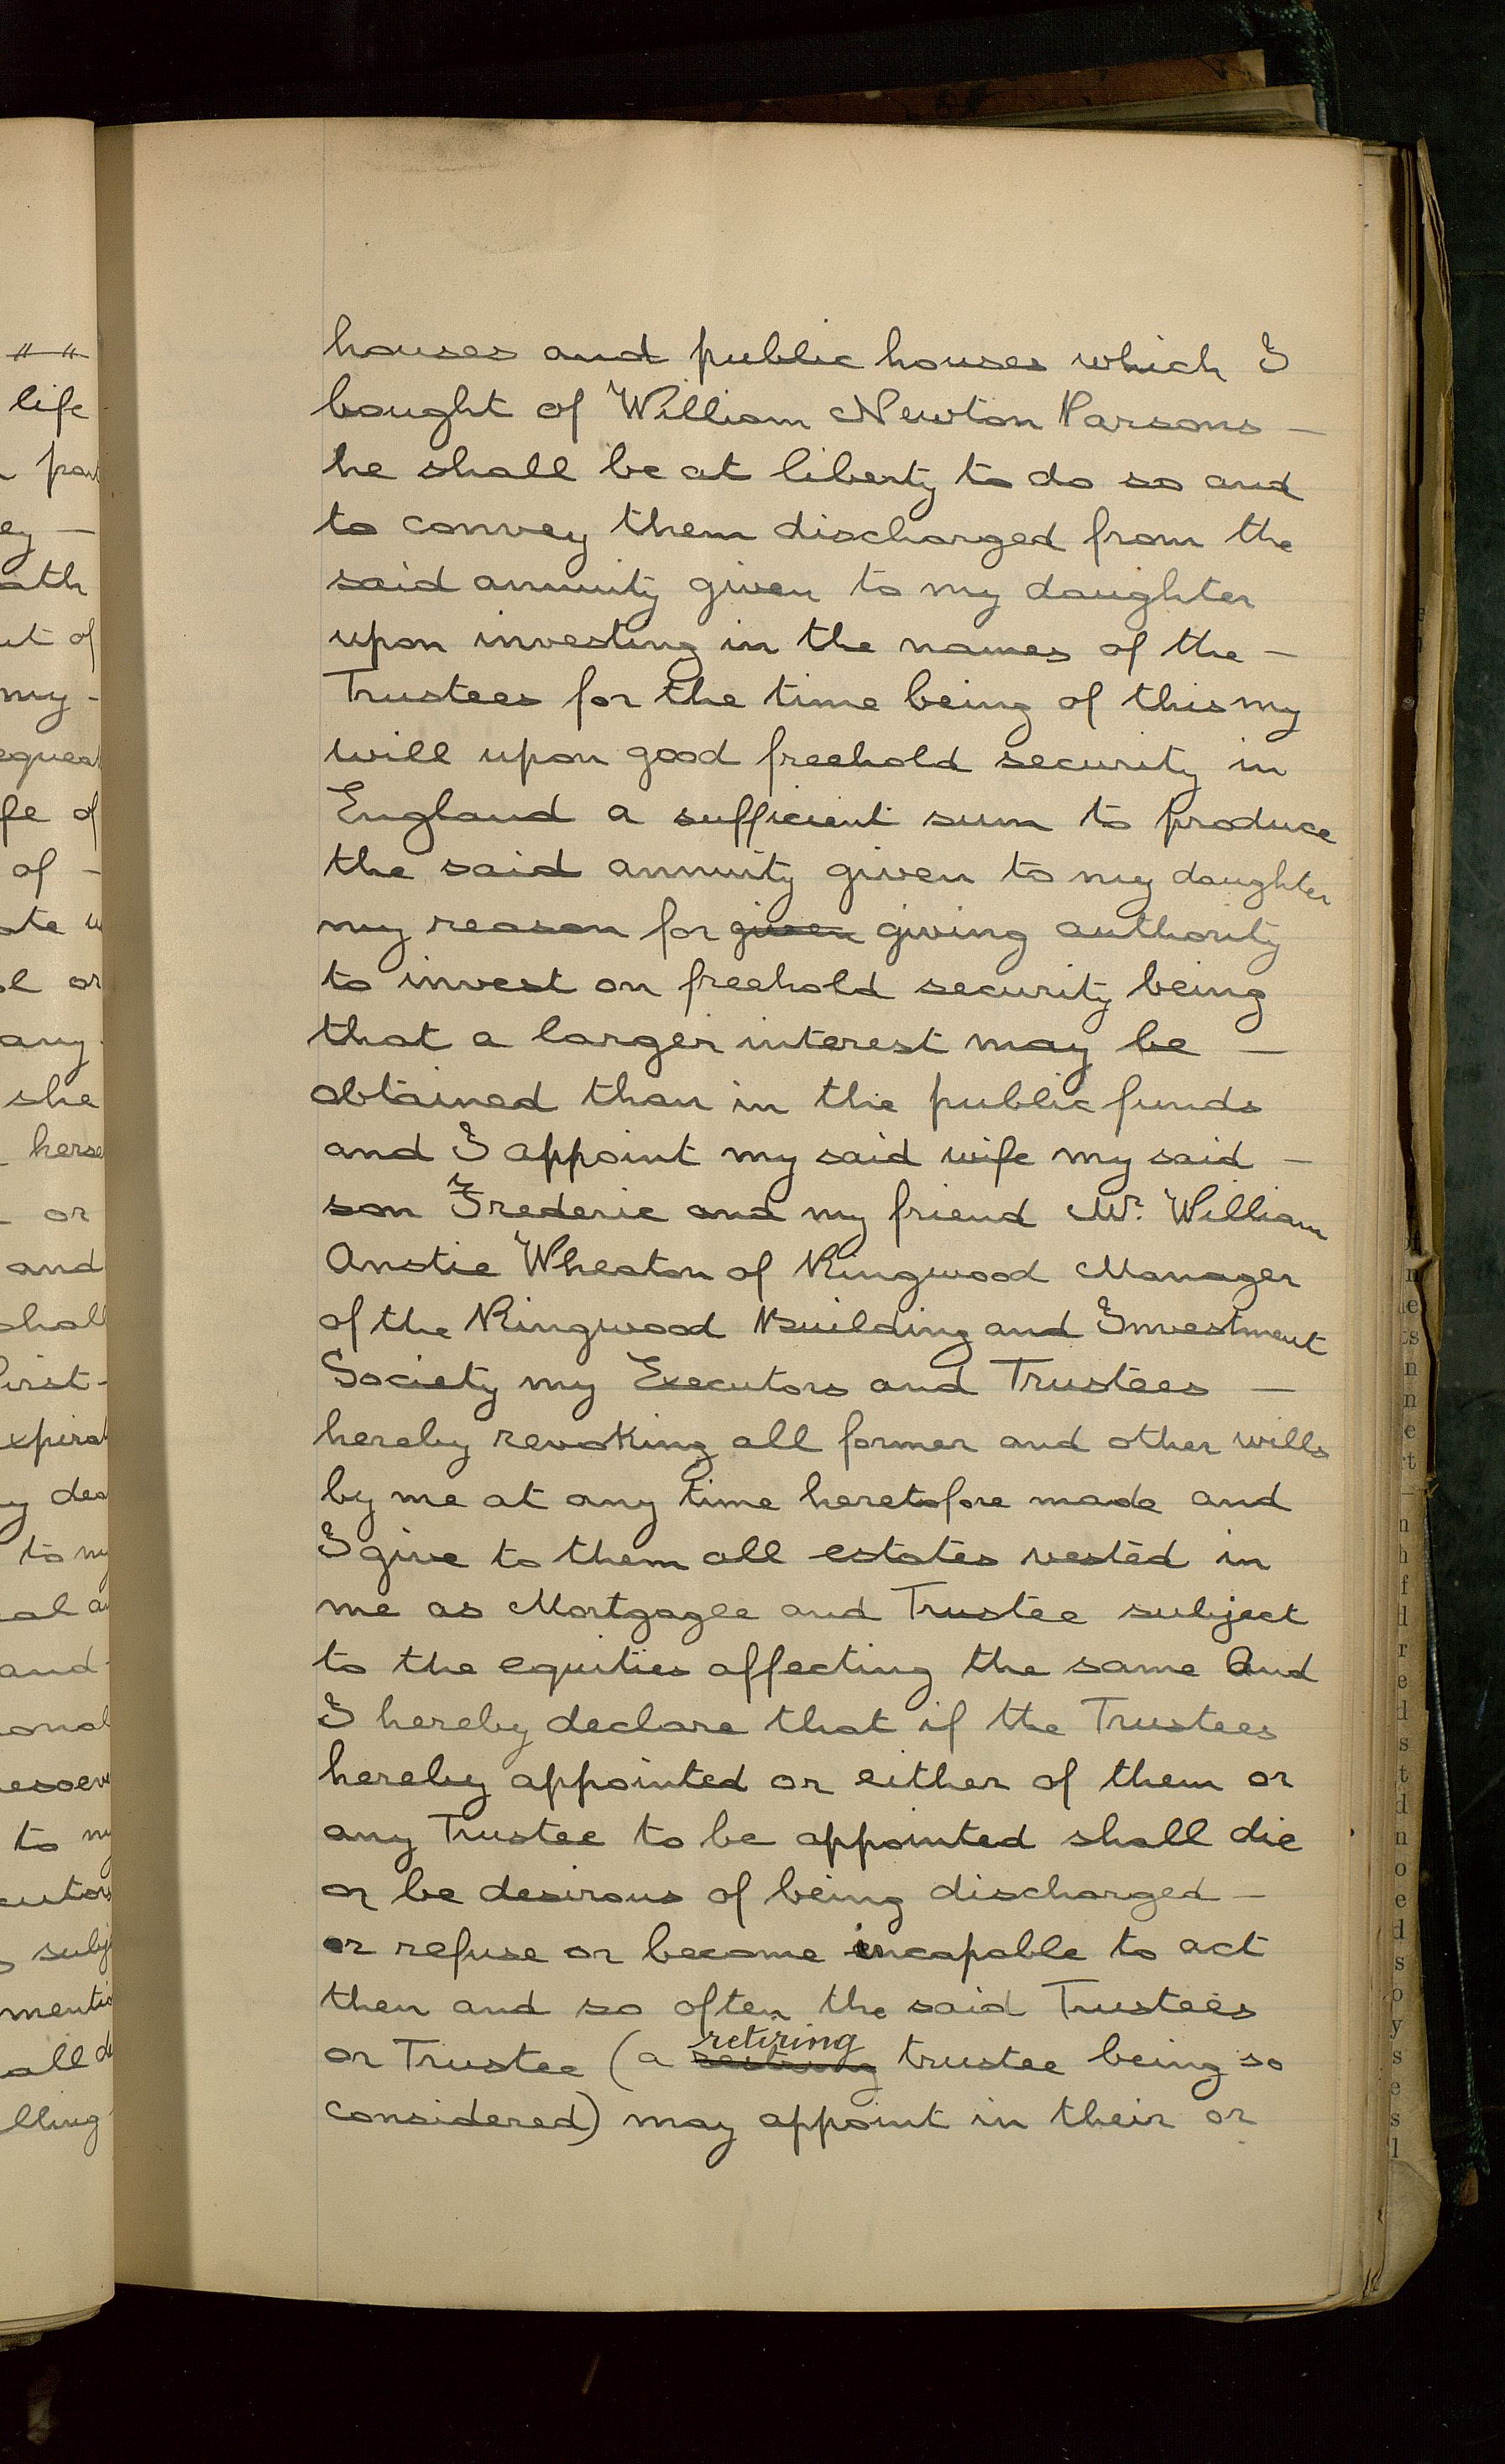 houses and public houses which I
bought of William Newton Parsons —
he shall be at liberty to do so and
to convey them discharged from the
said annuity given to my daughter
upon investing in the names of the —
Trustees for the time being of this my
will upon good freehold security in
England a sufficient sum to produce
the said annuity given to my daughter
my reason for given giving authority
to invest on freehold security being
that a larger interest may be —
obtained than in the public funds
and I appoint my said wife my said —
son Frederic and my friend Mr. William
Anstie Wheaton of Ringwood Manager
of the Ringwood Building and Investment
Society my Executors and Trustees —
hereby revoking all former and other wills
by me at any time heretofore made and
I give to them all estates vested in
me as Mortgagee and Trustee subject
to the equities affecting the same And
I hereby declare that if the Trustees
hereby appointed or either of them or
any Trustee to be appointed shall die
or be desirous of being discharged —
or refuse or become incapable to act
then and so often the said Trustees
retiring
or Trustee (a trustee being so
considered) may appoint in their or
life
ey —
of
my -
of -
any
she
or
and
to my
and
to my